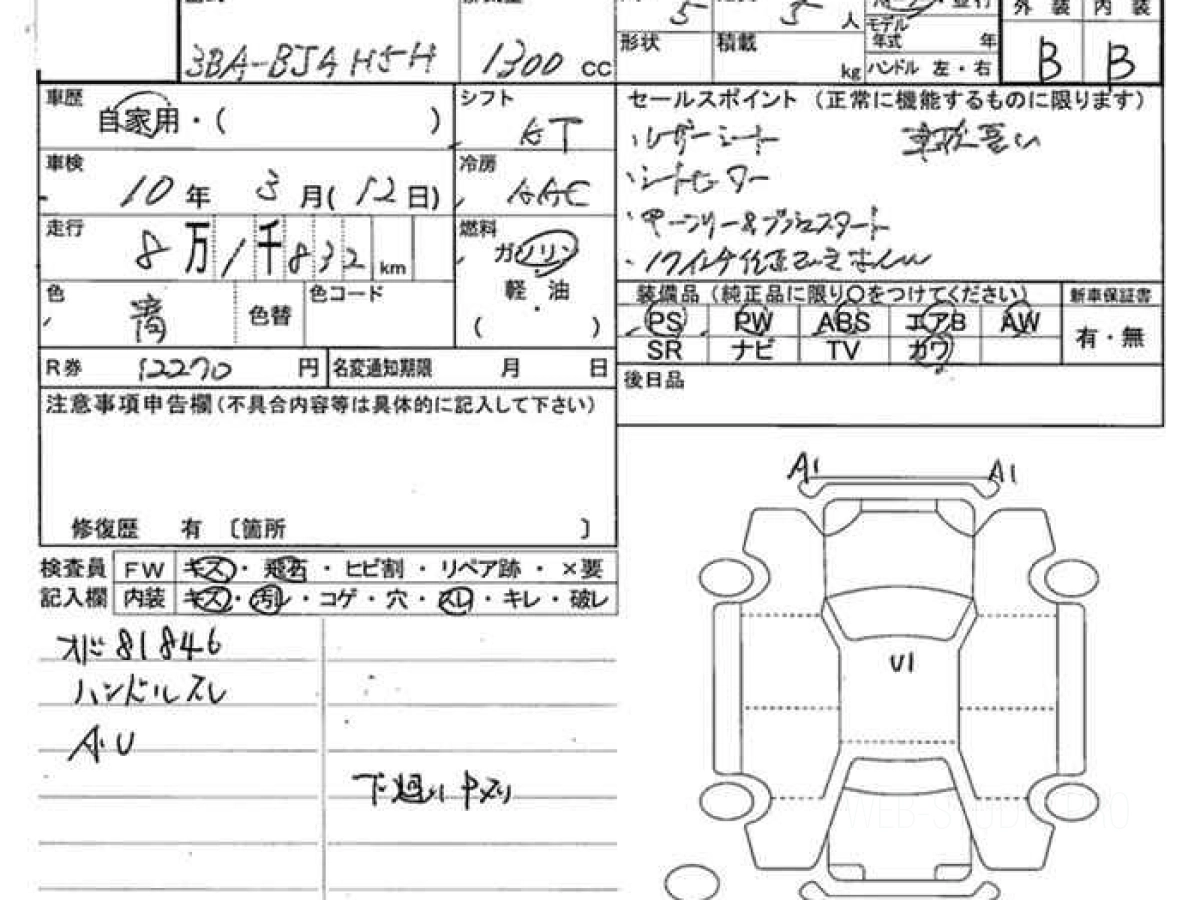 5 5 人 モデル年式 年
外装 内装
形状 積載 kg ハンドル 左・右
B B
3BA-BJAH5H 1300 cc
車歴 自家用・( )
シフト AT
セールスポイント (正常に機能するものに限ります)
・レザーシート
・シートヒーター
車検 10年 3月(12日)
冷房 AAC
走行 8万1千832 km
燃料 ガソリン
軽油
( )
色 青 色替 色コード
装備品 (純正品に限り○をつけてください) 新車保証書
PS PW ABS エアB AW 有・無
SR ナビ TV カワ
R券 12270 円 名変通知期限 月 日
後日品
注意事項申告欄(不具合内容等は具体的に記入して下さい)
修復歴 有 〔箇所 〕
A1 A1
検査員 FW キズ・飛石・ヒビ割・リペア跡・×要
記入欄 内装 キズ・汚レ・コゲ・穴・スレ・キレ・破レ
オド 81846
ハンドルスレ
U1
A・U
下廻り